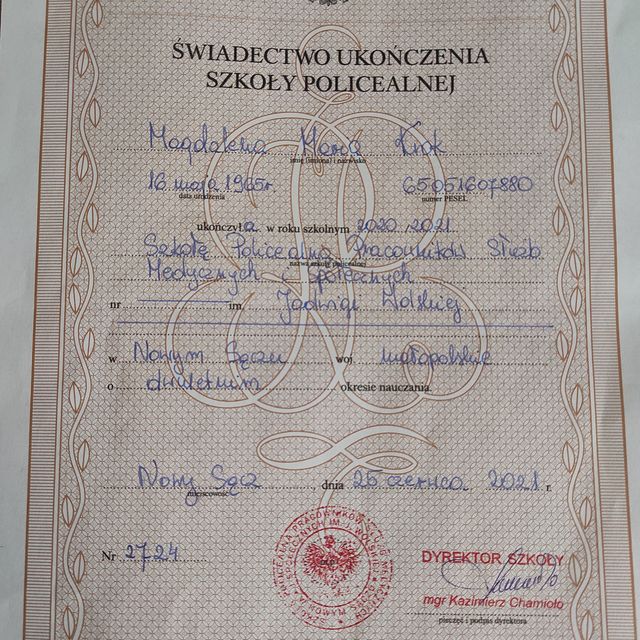 ŚWIADECTWO UKOŃCZENIA
SZKOŁY POLICEALNEJ
Magdalena Maria Krok
imię (imiona) i nazwisko
16 maja 1965r 65051607880
data urodzenia numer PESEL
ukończyła w roku szkolnym 2020/2021
Szkołę Policealną Pracowników Służb
nazwa szkoły policealnej
Medycznych i Społecznych
nr im. Jadwigi Wolskiej
w Nowym Sączu woj. małopolskie
o dwuletnim okresie nauczania.
Nowy Sącz, dnia 25 czerwca 2021 r.
miejscowość
Nr 2724
DYREKTOR SZKOŁY
mgr Kazimierz Chamioło
pieczęć i podpis dyrektora